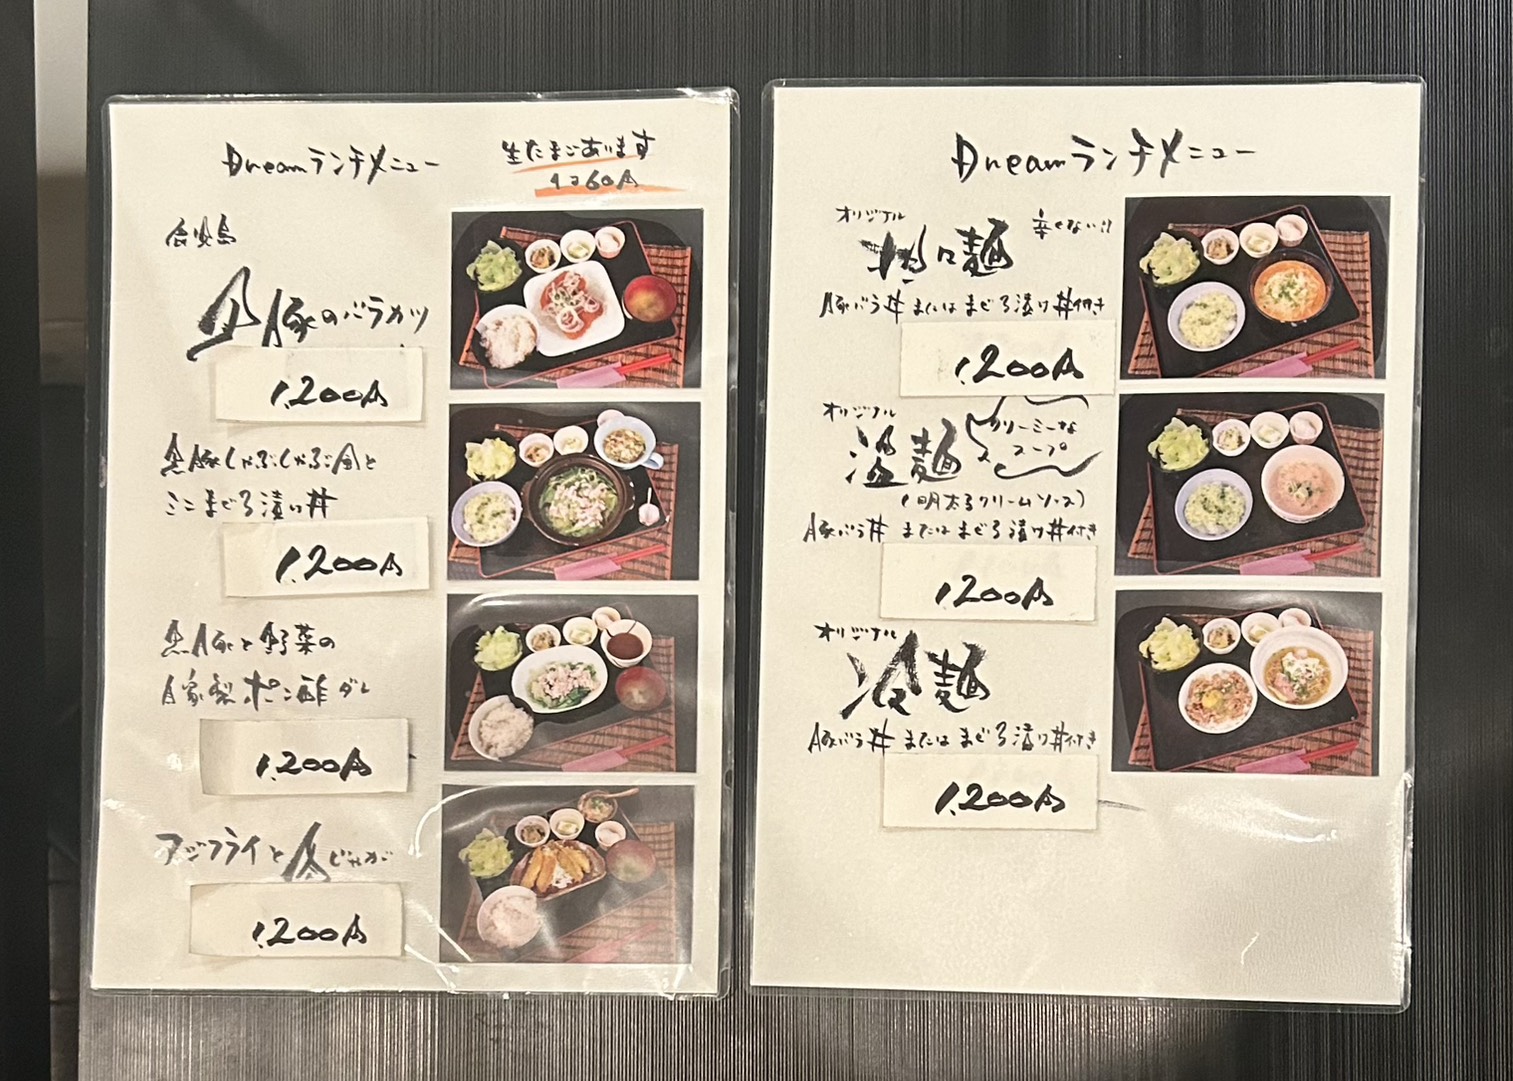 Dreamランチメニュー
生たまごあります
1コ60円
鹿児島
黒豚のバラカツ
1,200円
黒豚しゃぶしゃぶ風と
ミニまぐろ漬け丼
1,200円
黒豚と野菜の
自家製ポン酢ダレ
1,200円
アジフライと
じゃが
1,200円
Dreamランチメニュー
オリジナル
担々麺
辛くない!!
豚バラ丼またはまぐろ漬け丼付き
1,200円
オリジナル
温麺
クリーミーな
スープ
(明太子クリームソース)
豚バラ丼 またはまぐろ漬け丼付き
1,200円
オリジナル
冷麺
豚バラ丼 またはまぐろ漬け丼付き
1,200円